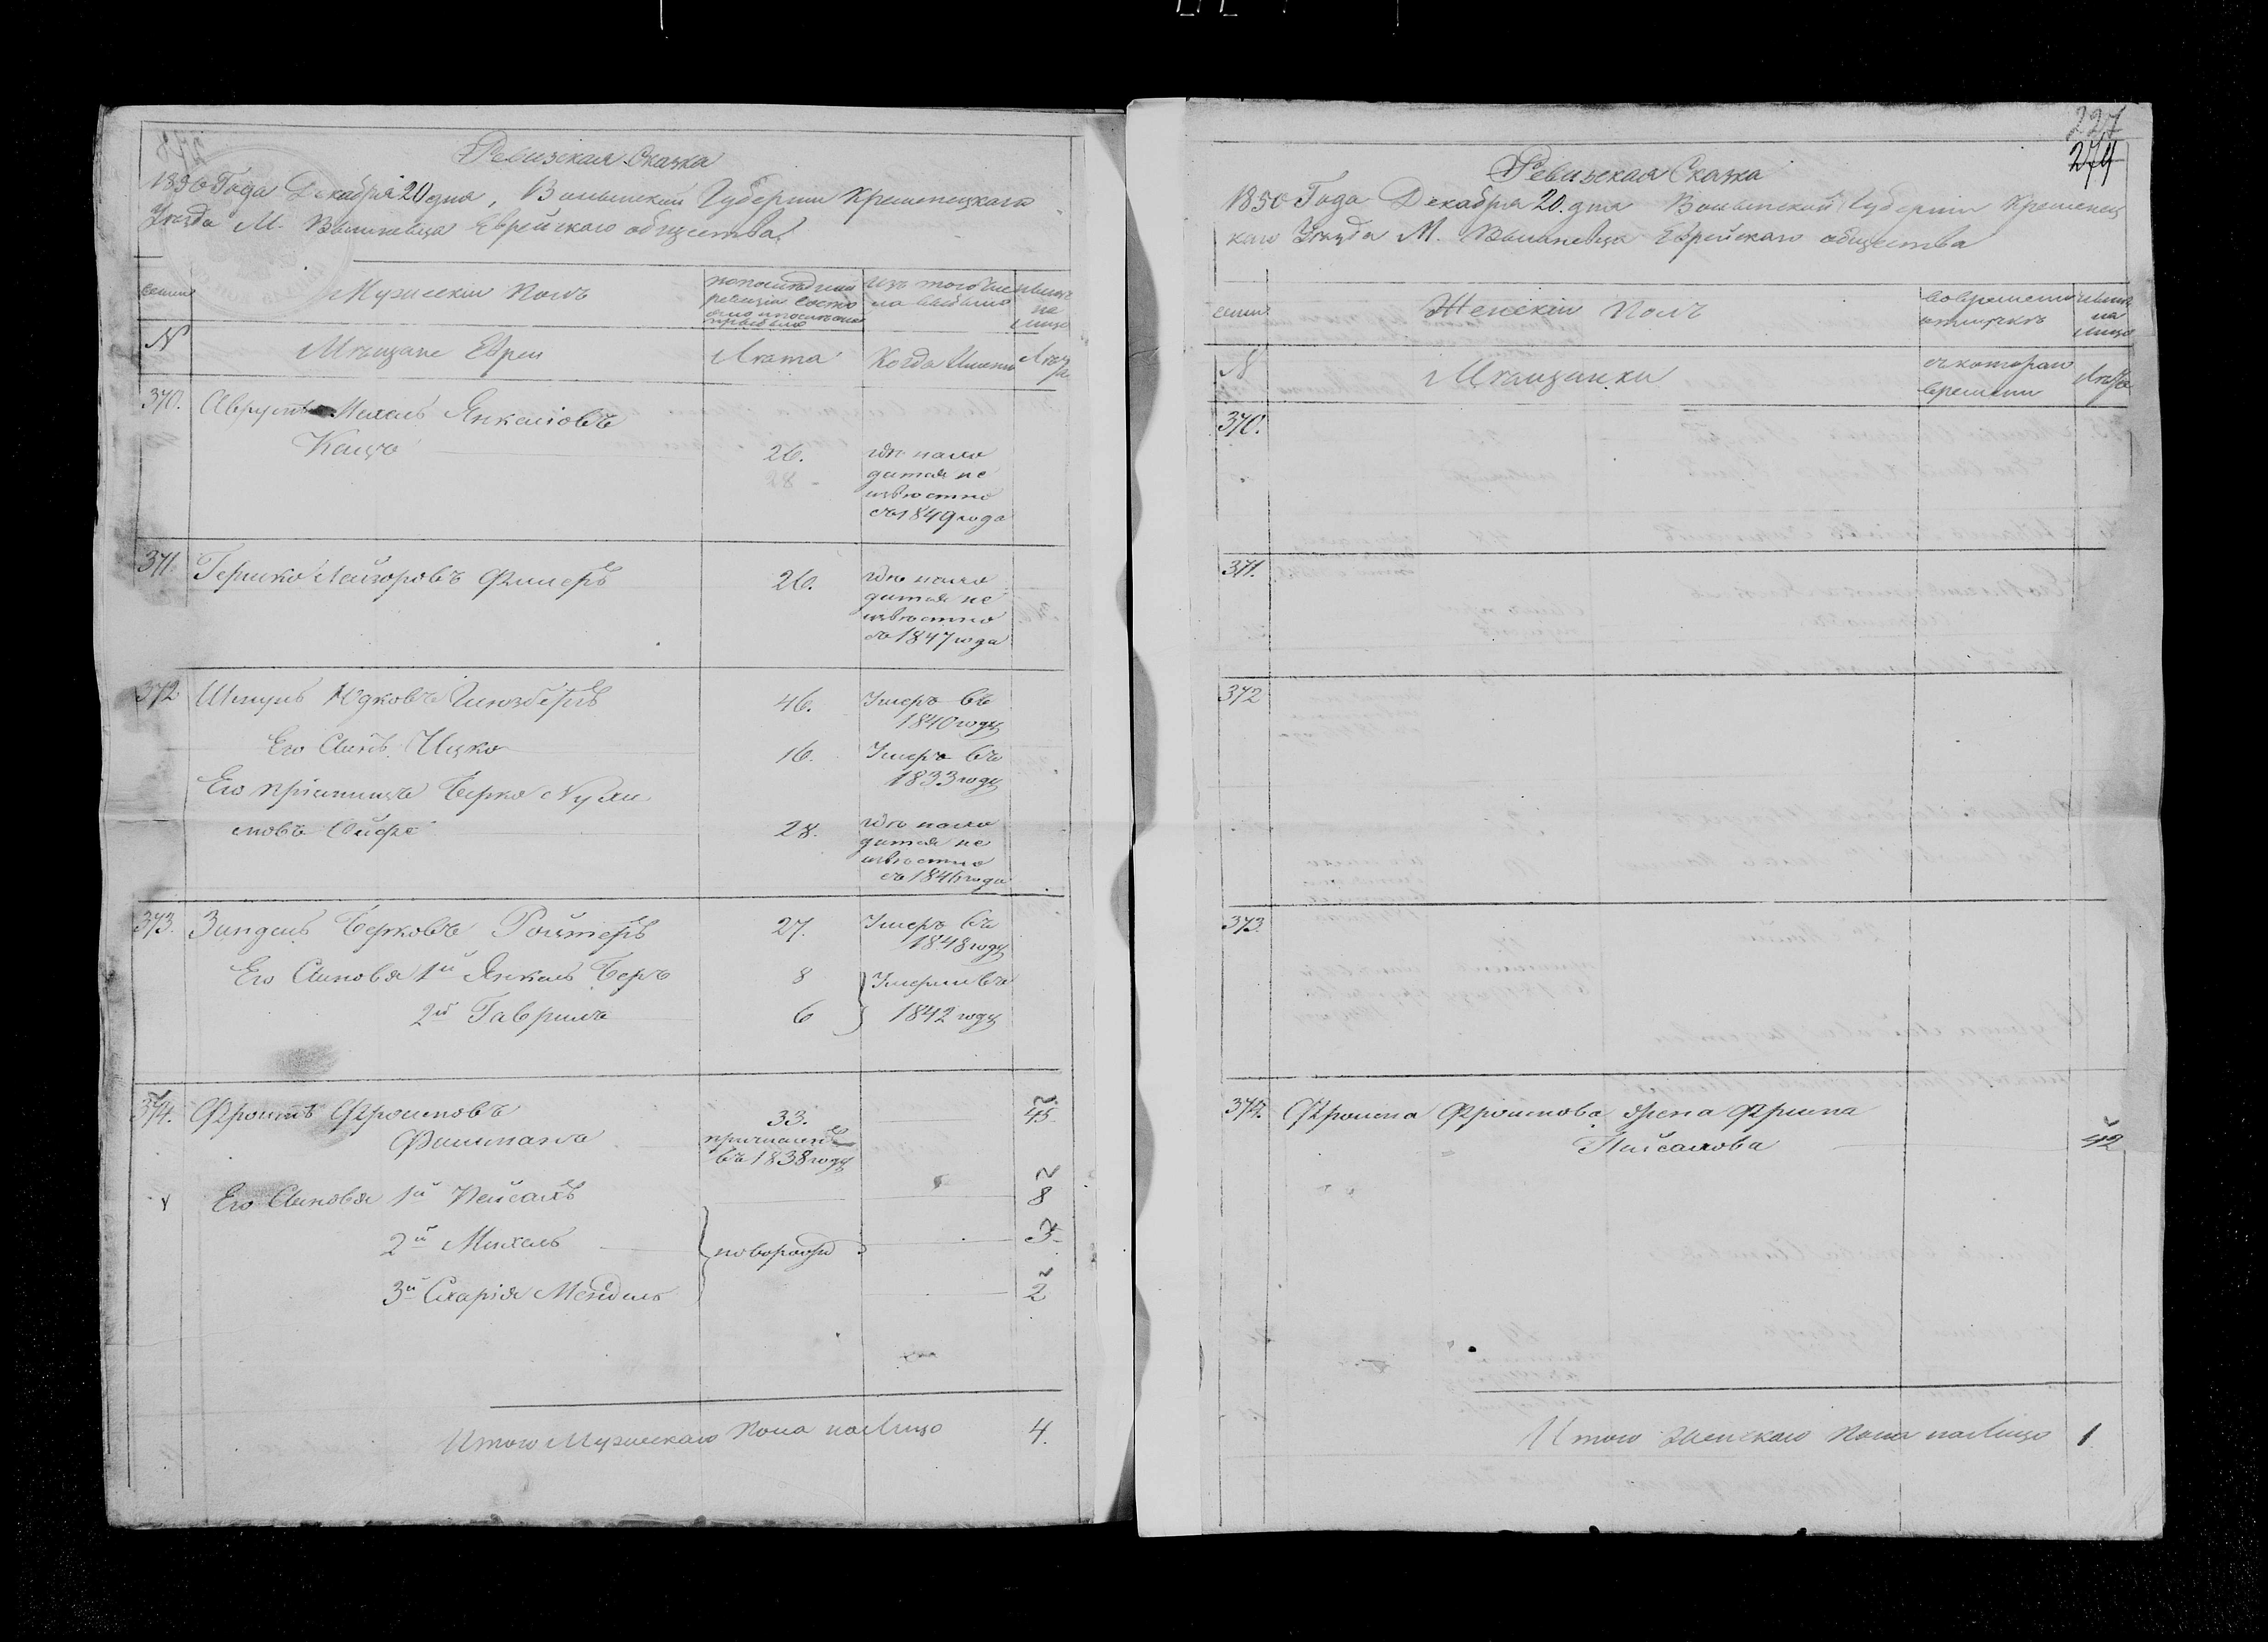 Ревизская Сказка
1850 Года Декабря 20 дня, Волынской Губернии Кременецкаго
Уезда М. Вишневца Еврейскаго общества
семьи
Мужескій Полъ
Изъ того чис
ла выбыло
ныне
на
лицо
№
Мѣщане Евреи
Лѣта
Когда Именно
Лѣта
370.
Михель Янкелiовъ
Кацъ
26.
28
где нахо
дится не
извѣстно
съ 1849 года
371.
Гершко Лейзоровъ Фишеръ
26.
где нахо
дится не
извѣстно
съ 1847 года
372
Шмуль Юдковъ
46.
Умеръ въ
1840 году
Его Сынъ Ицко
16.
Умеръ въ
1833 году
Его пріимышъ Берко
28.
где нахо
дится не
извѣстно
съ 1846 года
373.
Зиндель Берковъ Ройтеръ
27.
Умеръ въ
1848 году
Его Сыновья 1й Янкель Беръ
8
Умерли въ
2й Гаврилъ
6
1842 году
374.
Фроимъ Фроимовъ
33.
45
Фишманъ
причисленъ
въ 1838 году
Его Сыновья 1й Пейсахъ
8
2й Михель
новорожд
3
3й Схарія Мендель
2
Итого Мужескаго Пола на Лицо
4.
227
274
Ревизская Сказка
1850 Года Декабря 20 дня Волынской Губернии Кременец
каго Уезда М. Вишневца Еврейскаго общества
семьи
Женскій Полъ
во временной
отлучкѣ
ныне
на
лицо
№
Мѣщанки
съ котораго
времени
Лѣта
370.
371.
372
373.
374.
Фроима Фроимова жена Фрима
Пейсахова
42
Итого женскаго Пола на Лицо
1